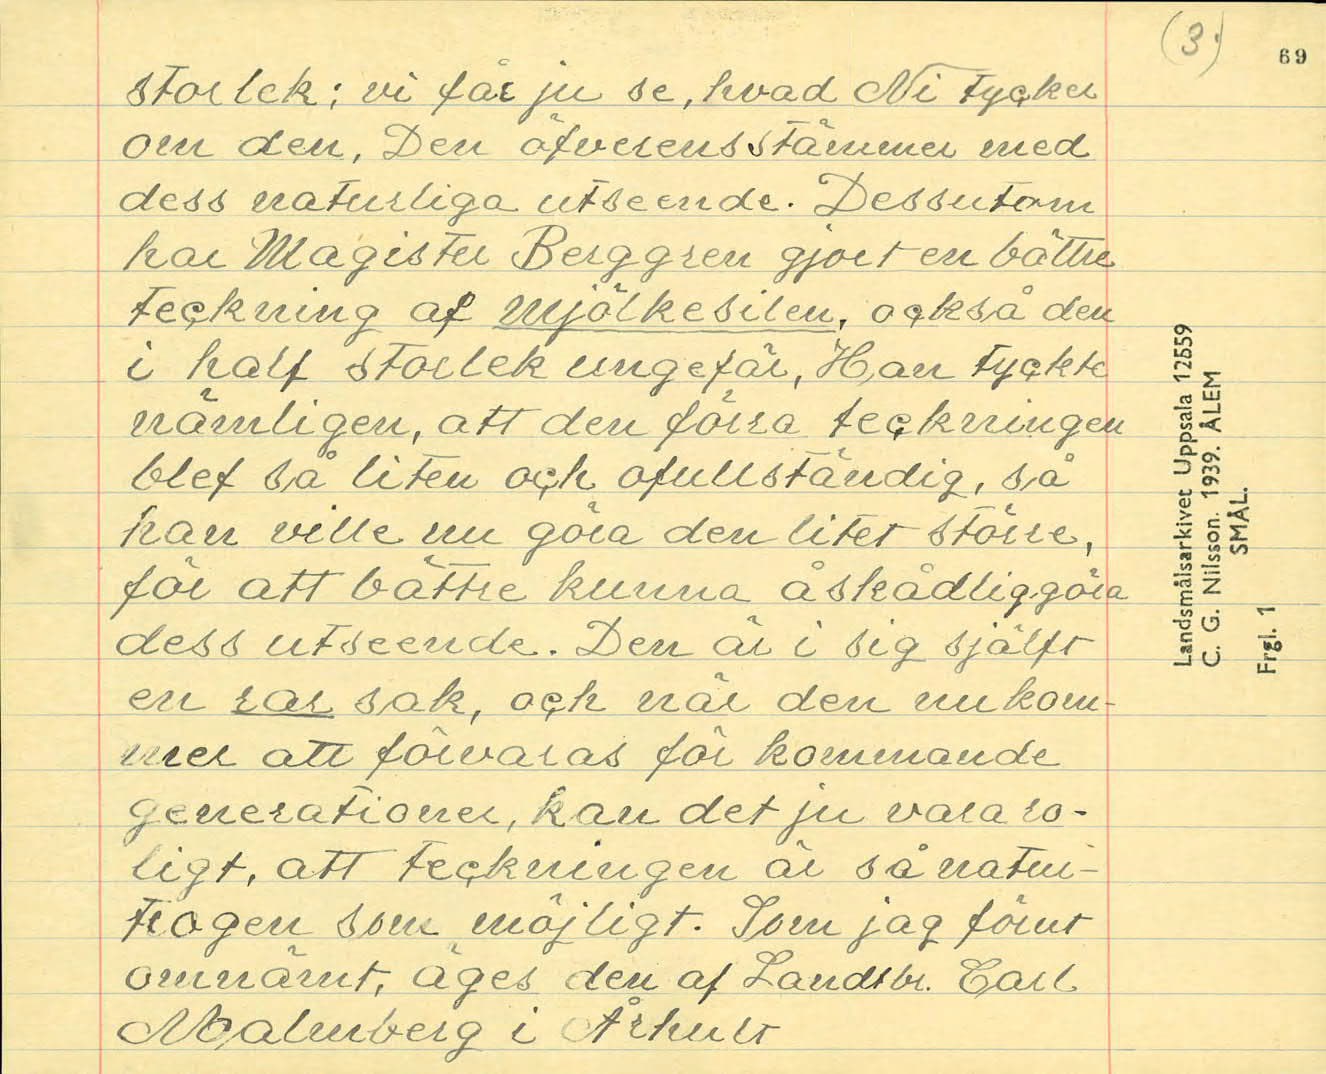 (3.)
69
storlek; vi får ju se, hvad Ni tycker
om den, Den öfverensstämmer med
dess naturliga utseende. Dessutom
har Magister Berggren gjort en bättre
teckning af mjölkesilen, också den
i half storlek ungefär, Han tyckte
nämligen, att den förra teckningen
blef så liten och ofullständig, så
han ville nu göra den litet större,
för att bättre kunna åskådliggöra
dess utseende. Den är i sig själft
en rar sak, och när den nu kom-
mer att förvaras för kommande
generationer, kan det ju vara ro-
ligt, att teckningen är så natur-
trogen som möjligt. Som jag förut
omnämt, äges den af Landtbr. Carl
Malmberg i Århult
Landsmålsarkivet Uppsala 12559
C. G. Nilsson. 1939. ÅLEM
SMÅL.
Frgl. 1